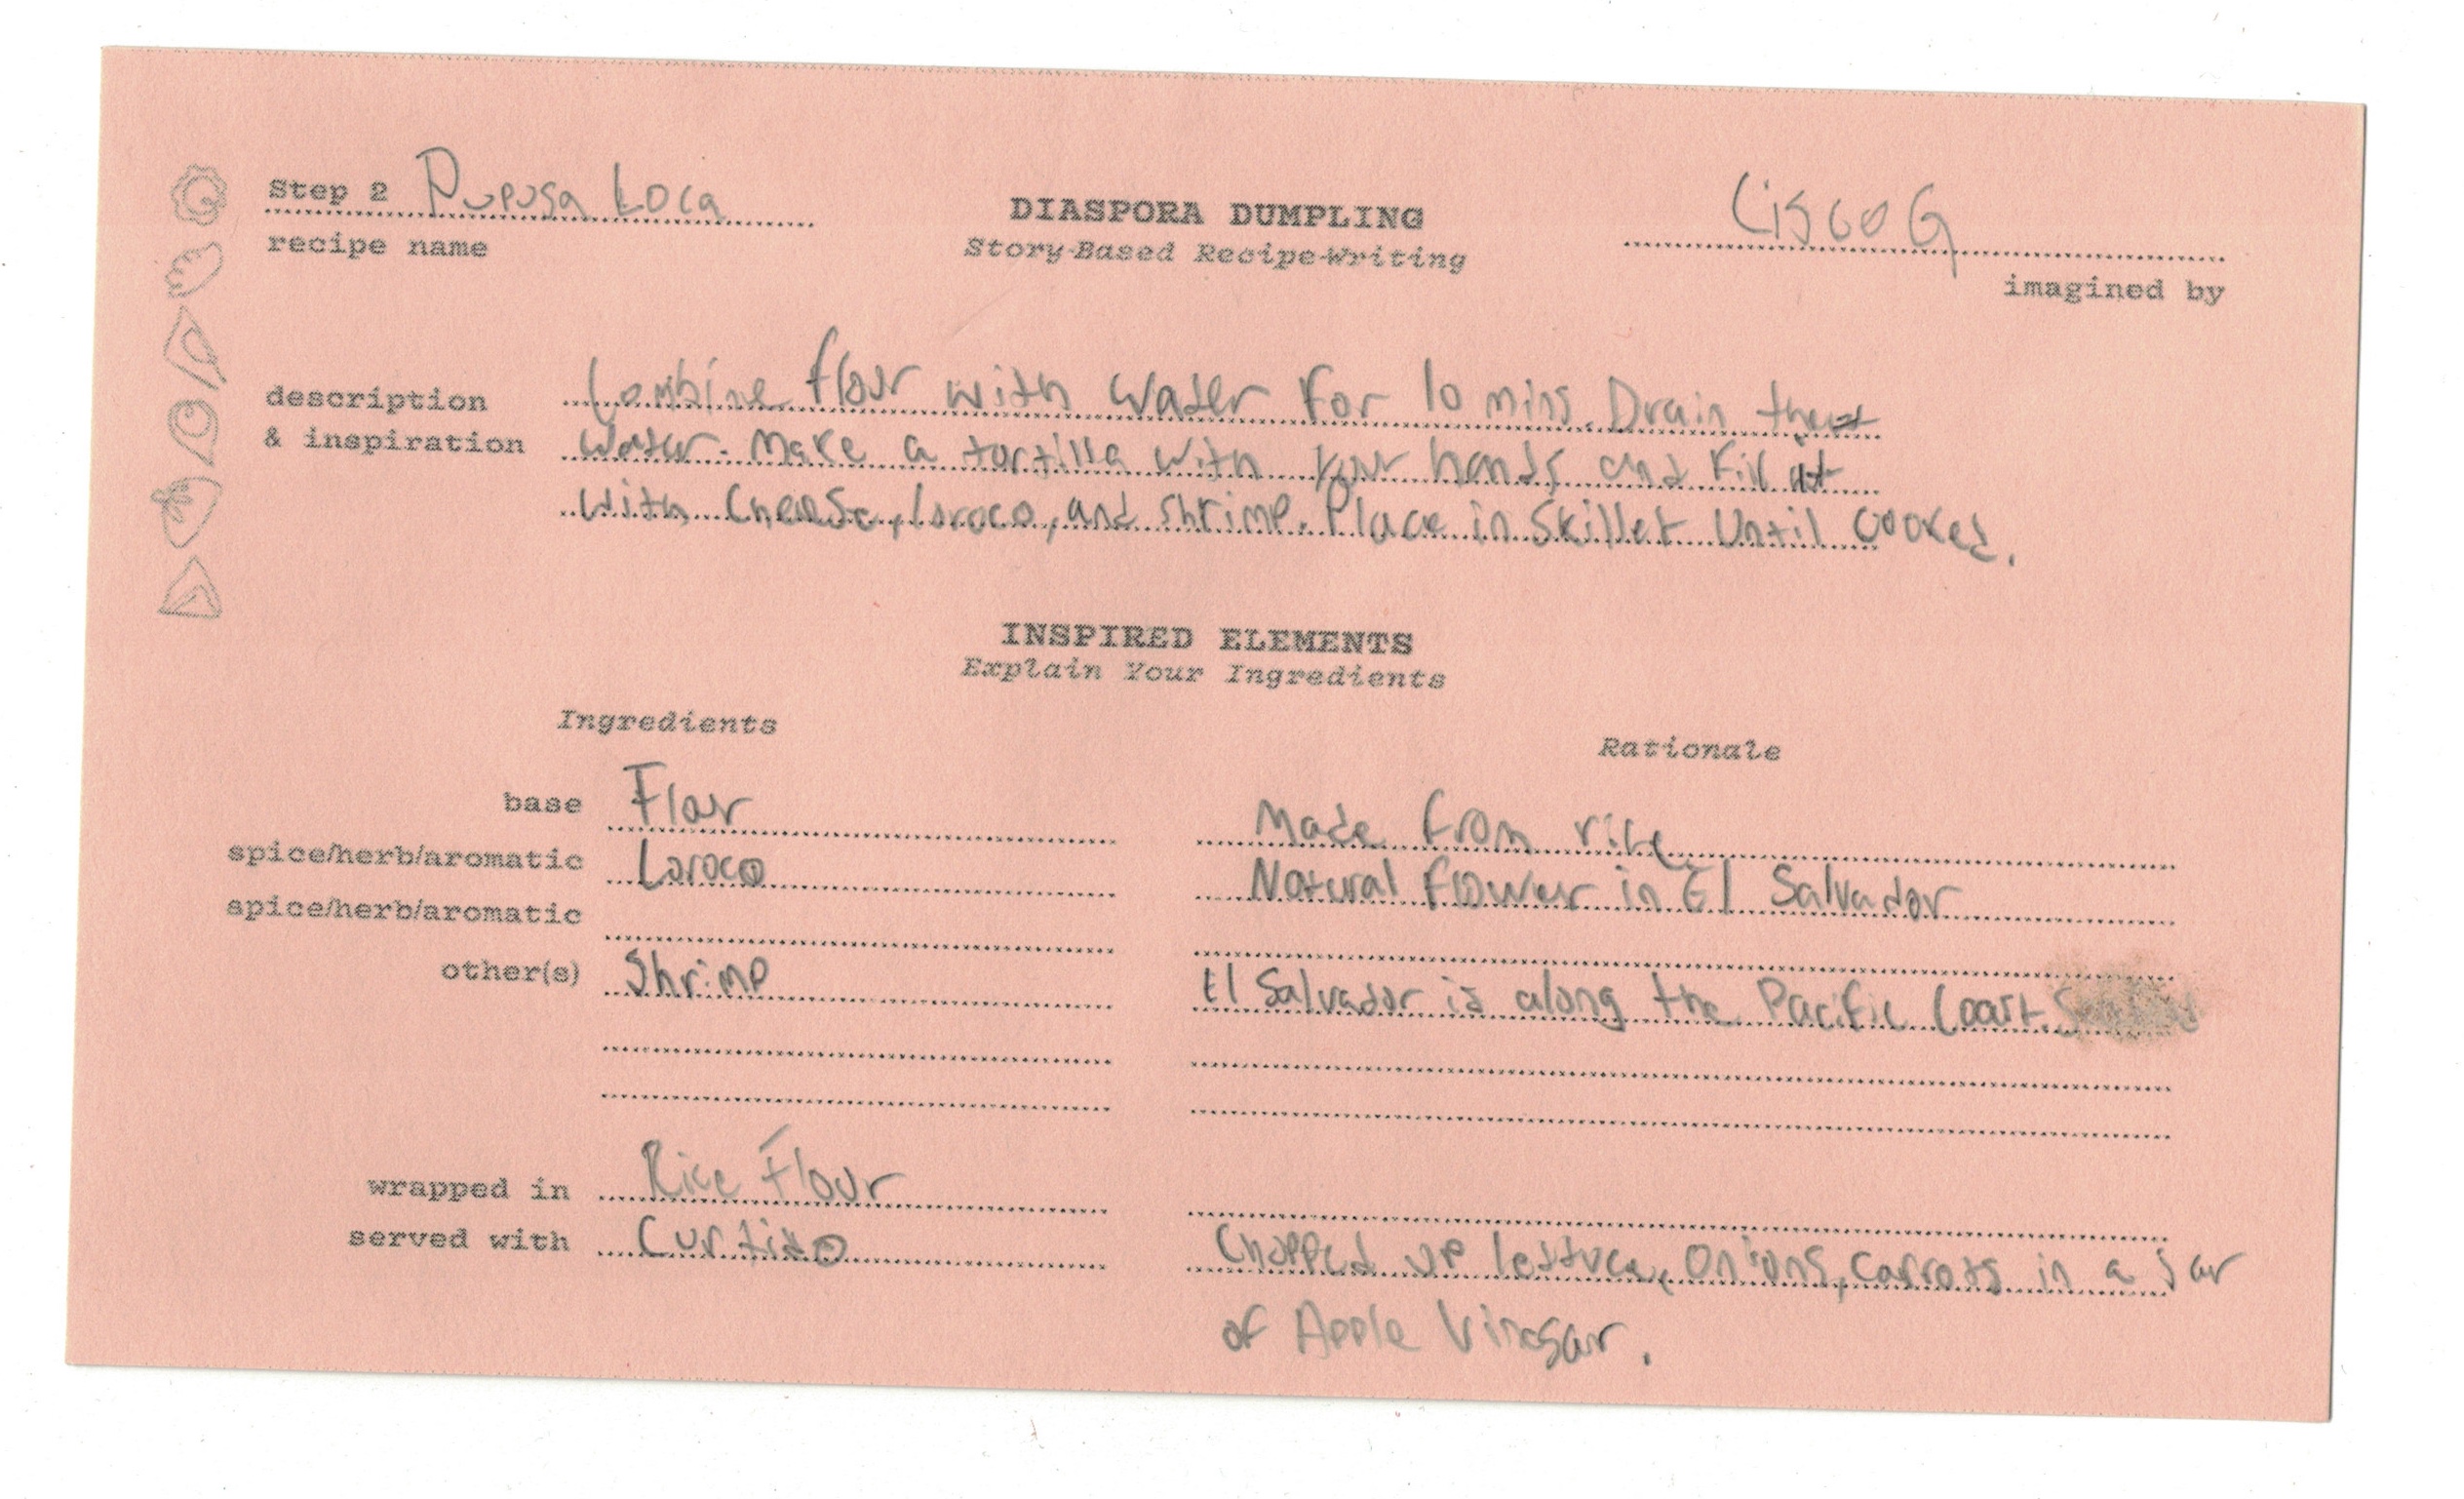 Step 2 Pupusa Loca
recipe name
DIASPORA DUMPLING
Story-Based Recipe-Writing
Cisco G
imagined by
description
& inspiration
Combine flour with Water For 10 mins. Drain the
Water. Make a tortilla with your hands and Fill it
With Cheese, loroco, and shrimp. Place in Skillet Until Cooked.
INSPIRED ELEMENTS
Explain Your Ingredients
Ingredients
Rationale
base Flour Made from rice
spice/herb/aromatic Loroco Natural Flower in El Salvador
spice/herb/aromatic
other(s) Shrimp El Salvador is along the Pacific Coast.
wrapped in Rice Flour
served with Curtido Chopped up lettuce, Onions, Carrots in a Jar
of Apple Vinegar.